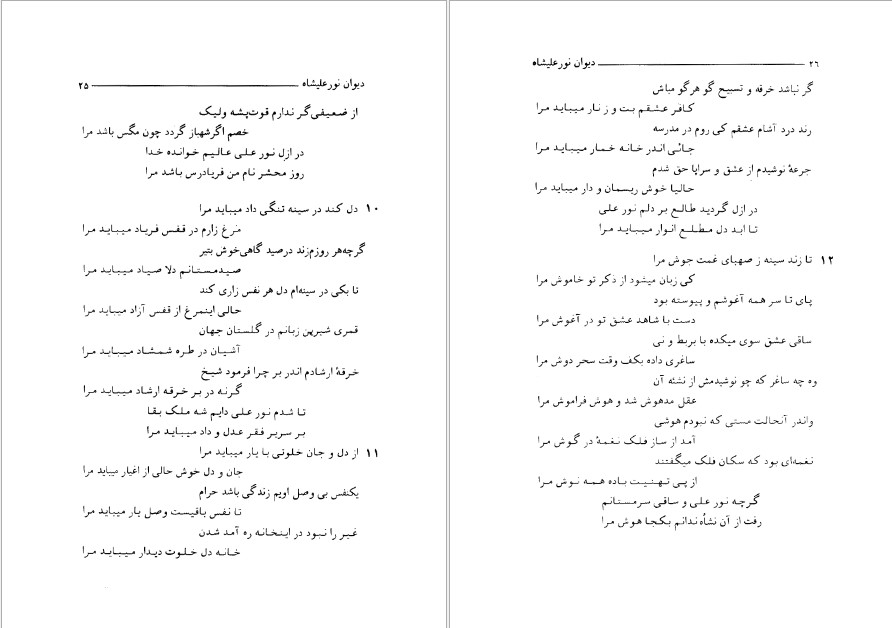 دیوان نورعلیشاه ۲۵
از ضعیفی گر ندارم قوت پشه ولیک
خصم اگر شهباز گردد چون مگس باشد مرا
در ازل نور علی عالیم خوانده خدا
روز محشر نام من فریادرس باشد مرا
۱۰ دل کند در سینه تنگی داد میباید مرا
مرغ زارم در قفس فریاد میباید مرا
گرچه هر روزم زند در صید گاهی خوش بتیر
صید مستانم دلا صیاد میباید مرا
تا بکی در سینه‌ام دل هر نفس زاری کند
حالی اینمرغ از قفس آزاد میباید مرا
قمری شیرین زبانم در گلستان جهان
آشیان در طره شمشاد میباید مرا
خرقهٔ ارشادم اندر بر چرا فرمود شیخ
گرنه در بر خرقه ارشاد میباید مرا
تا شدم نور علی دایم شه ملک بقا
بر سریر فقر عدل و داد میباید مرا
۱۱ از دل و جان خلوتی با یار میباید مرا
جان و دل خوش حالی از اغیار میباید مرا
یکنفس بی وصل اویم زندگی باشد حرام
تا نفس باقیست وصل یار میباید مرا
غیر را نبود در اینخانه ره آمد شدن
خانه دل خلوت دیدار میباید مرا
۲۶ دیوان نورعلیشاه
گر نباشد خرقه و تسبیح گو هرگو مباش
کافر عشقم بت و ز نار میباید مرا
رند درد آشام عشقم کی روم در مدرسه
جائی اندر خانه خمار میباید مرا
جرعهٔ نوشیدم از عشق و سراپا حق شدم
حالیا خوش ریسمان و دار میباید مرا
در ازل گردید طالع بر دلم نور علی
تا ابد دل مطلع انوار میباید مرا
۱۲ تا زند سینه ز صهبای غمت جوش مرا
کی زبان میشود از ذکر تو خاموش مرا
پای تا سر همه آغوشم و پیوسته بود
دست با شاهد عشق تو در آغوش مرا
ساقی عشق سوی میکده با بربط و نی
ساغری داده بکف وقت سحر دوش مرا
وه چه ساغر که چو نوشیدمش از نشئه آن
عقل مدهوش شد و هوش فراموش مرا
واندر آنحالت مستی که نبودم هوشی
آمد از ساز فلک نغمهٔ در گوش مرا
نغمه‌ای بود که سکان فلک میگفتند
از پی تهنیت باده همه نوش مرا
گرچه نور علی و ساقی سرمستانم
رفت از آن نشأه ندانم بکجا هوش مرا